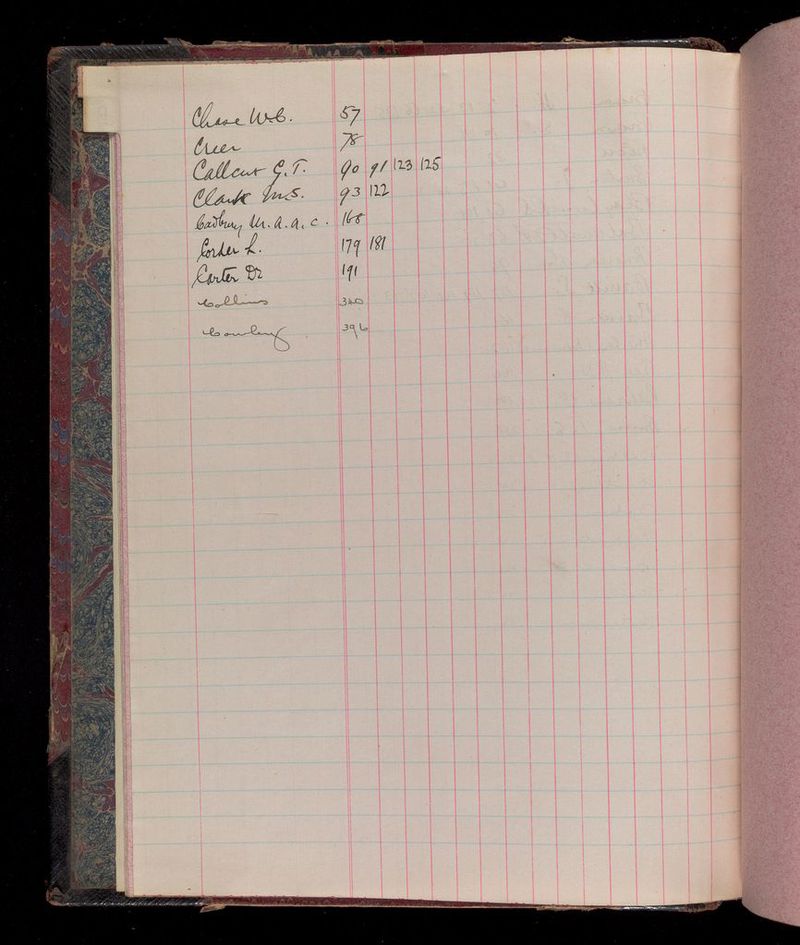 Chase W.C. 57
Creer 78
Callcut G.T. 90 91 123 125
Clark M.S. 93 122
Cadbury M. A. A. C. 168
Corder L. 179 181
Carter Dr 191
Collins 340
396